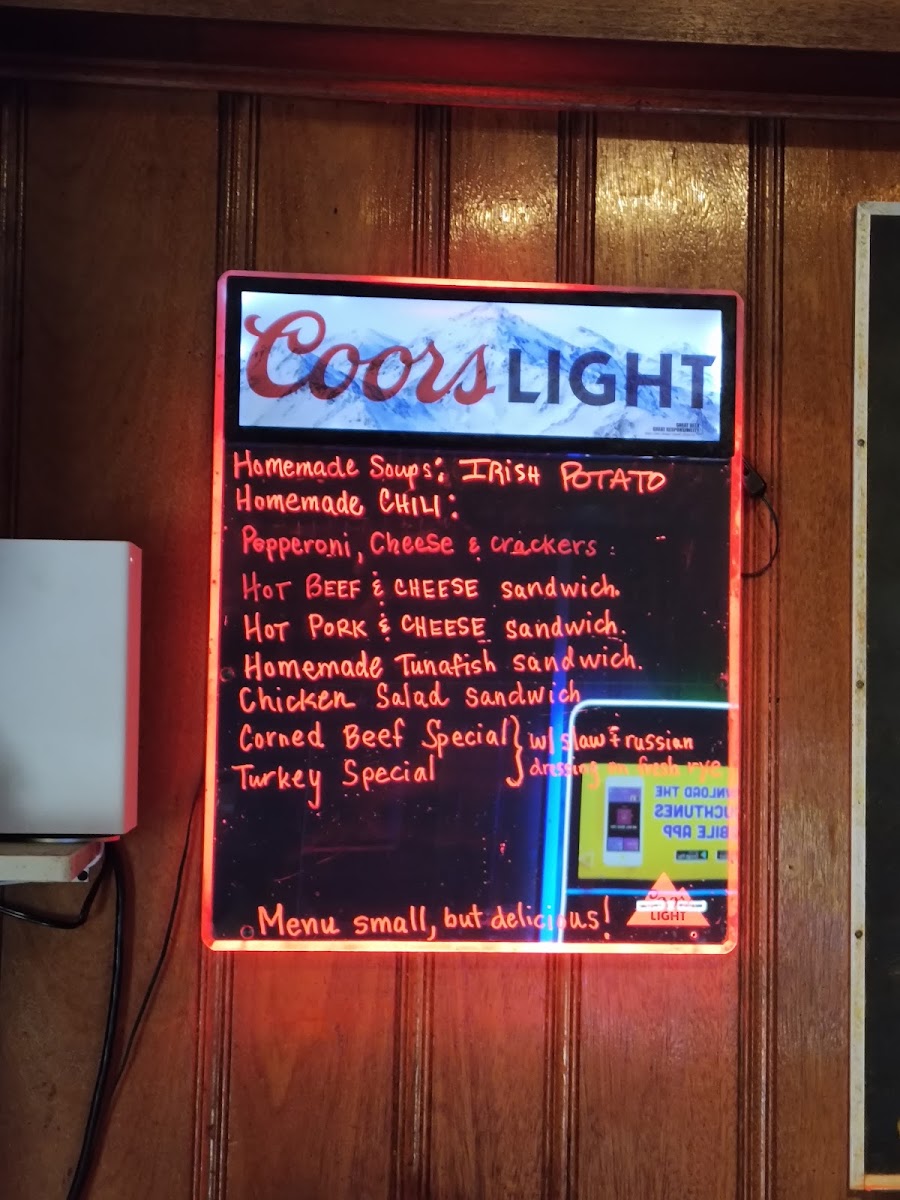 Coors LIGHT
GREAT BEER
GREAT RESPONSIBILITY
Homemade Soups: IRISH POTATO
Homemade CHILI:
Pepperoni, Cheese & crackers
HOT BEEF & CHEESE sandwich.
HOT PORK & CHEESE sandwich.
Homemade Tunafish sandwich.
Chicken Salad sandwich
Corned Beef Special } w/ slaw + russian
Turkey Special dressing on fresh rye
WNLOAD THE
UCHTUNES
BILE APP
LIGHT
Menu small, but delicious!